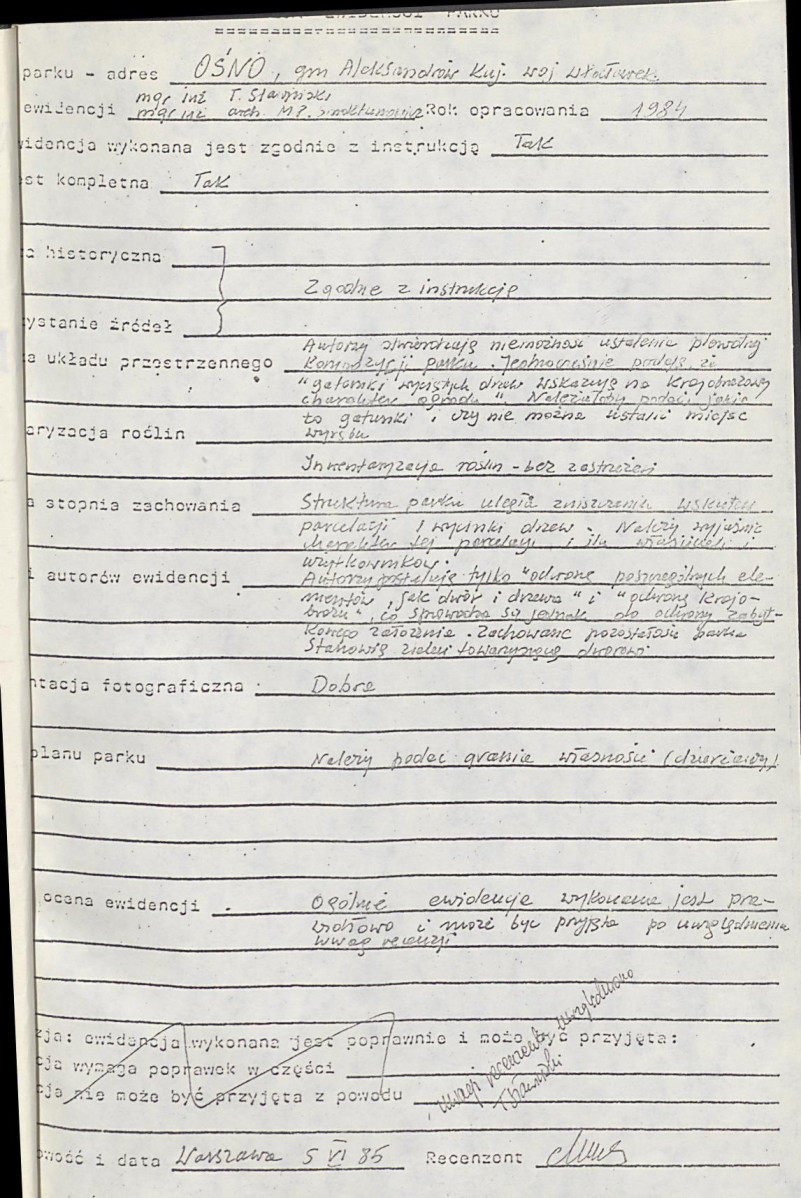 EWIDENCJI PARKU
parku - adres OŚNO, gm Aleksandrów Kuj. woj Włocławek
mgr inż T. Stawiński
ewidencji mgr inż arch. M.P. Rok opracowania 1984
widencja wykonana jest zgodnie z instrukcją Tak
st kompletna Tak
a historyczna
Zgodne z instrukcją
ystanie źródeł
Autorzy stwierdzają niemożność ustalenia pierwotnej
a układu przestrzennego kompozycji parku. Jednocześnie podają, że
"gatunki wyciętych drzew wskazują na krajobrazowy
charakter ogrodu". Należałoby podać jakie
to gatunki i czy nie można ustalić miejsc
eryzacja roślin wyrębu
Inwentaryzacja roślin - bez zastrzeżeń
a stopnia zachowania Struktura parku uległa zniszczeniu wskutek
parcelacji i wycinki drzew. Należy wyjaśnić
charakter tej parcelacji i ilu właścicieli i
użytkowników.
i autorów ewidencji Autorzy postulują tylko "ochronę poszczególnych ele-
mentów, jak dwór i drzewa" i "ochronę krajo-
brazu", co sprowadza się jednak do ochrony zabyt-
kowego założenia. Zachowane pozostałości parku
stanowią zieleń towarzyszącą dworowi.
ntacja fotograficzna Dobra
planu parku Należy podać granice własności (dzierżawy)
ocena ewidencji Ogólnie ewidencja wykonana jest pra-
widłowo i może być przyjęta po uwzględnieniu
uwag recenzji
cja: ewidencja wykonana jest poprawnie i może być przyjęta:
cja wymaga poprawek w części
cja nie może być przyjęta z powodu
uwagi recenzenta uwzględniono
T Stawiński
owość i data Warszawa 5 VI 85 Recenzent